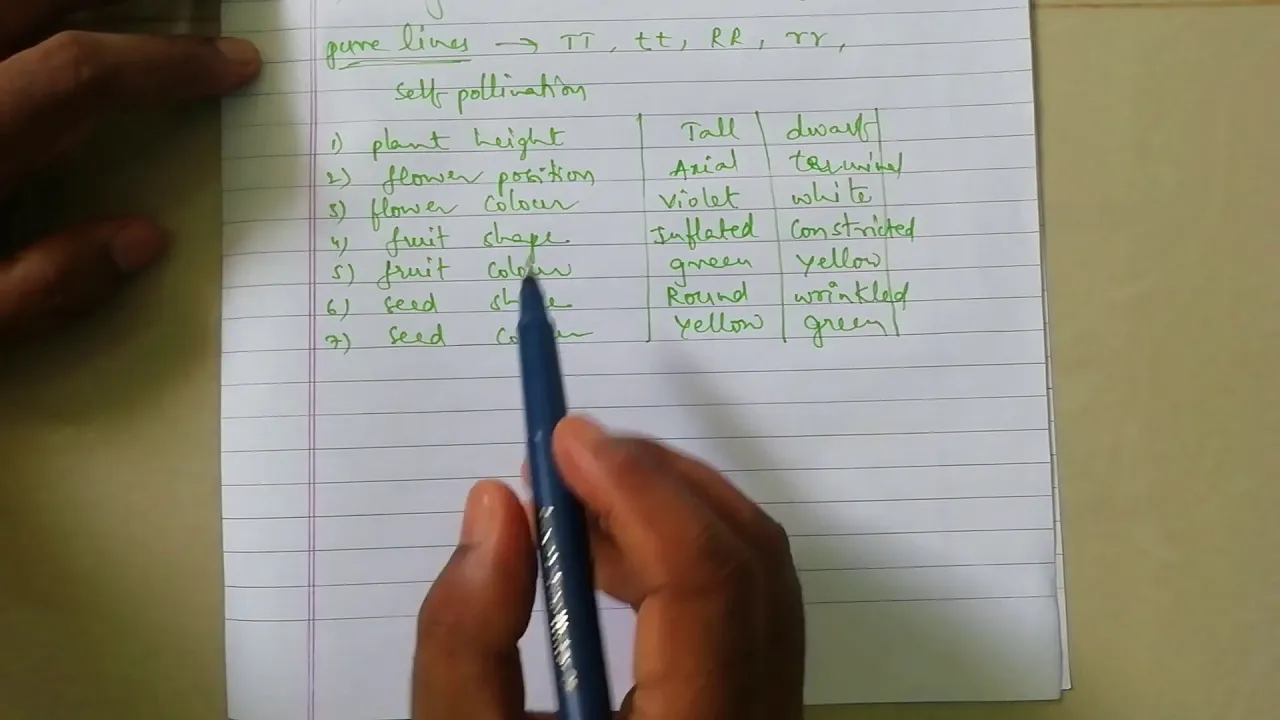 pure lines → TT, tt, RR, rr,
self pollination
1) plant height Tall dwarf
2) flower position Axial terminal
3) flower colour violet white
4) fruit shape Inflated constricted
5) fruit colour green yellow
6) seed shape Round wrinkled
7) seed colour yellow green